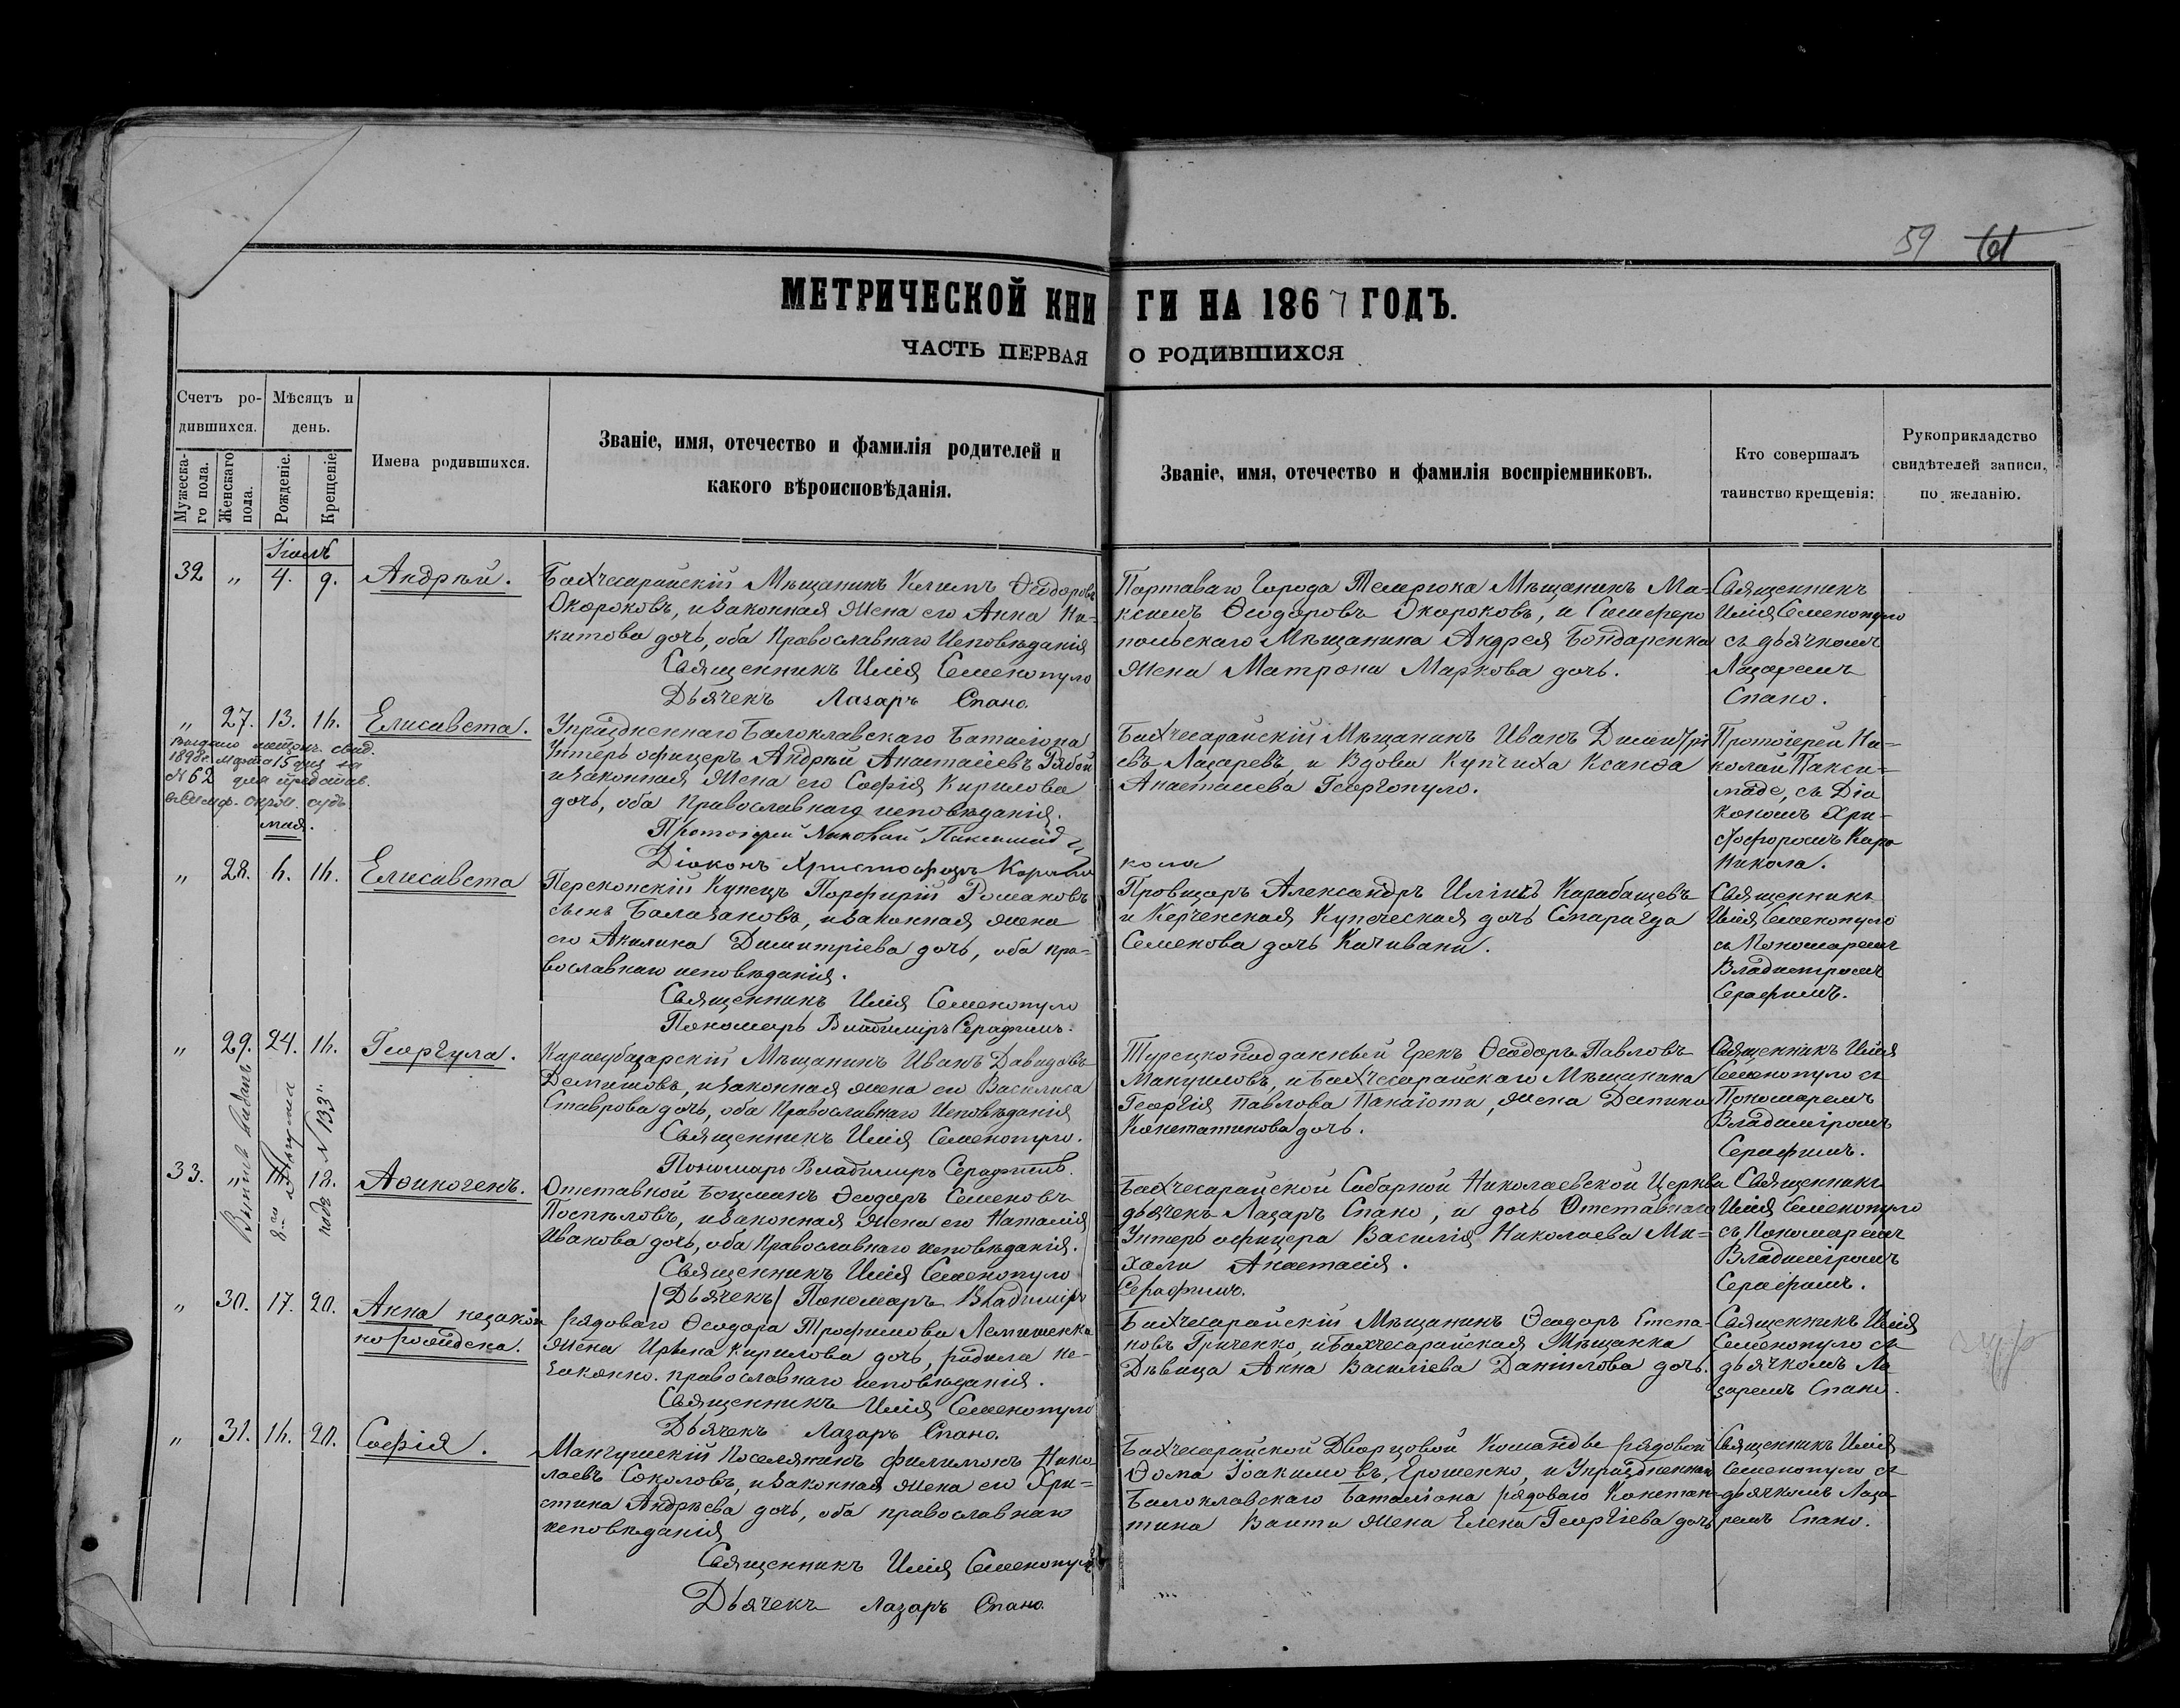 59 61
МЕТРИЧЕСКОЙ КНИГИ НА 1867 ГОДЪ.
ЧАСТЬ ПЕРВАЯ О РОДИВШИХСЯ
Счетъ ро-
дившихся.
Мужеска-
го пола.
Женскаго
пола.
Мѣсяцъ и
день.
Рожденіе.
Крещеніе.
Имена родившихся.
Званіе, имя, отечество и фамилія родителей и
какого вѣроисповѣданія.
Званіе, имя, отечество и фамилія воспріемниковъ.
Кто совершалъ
таинство крещенія:
Рукоприкладство
свидѣтелей записи,
по желанію.
32 „ 4. 9. Андрѣй.
Бахчесарайскій Мѣщанинъ Климъ Ѳеодоровъ
Окороковъ, и законная жена его Анна Ни-
китова дочь, оба Православнаго Исповѣданія
Священникъ Илія Семенопуло
Дьячекъ Лазарь Спано.
Портоваго Города Темрюка Мѣщанинъ Ма-
ксимъ Ѳеодоровъ Окороковъ, и Симферо
польскаго Мѣщанина Андрея Бондаренка
жена Матрона Маркова дочь.
Священникъ
Илія Семенопуло
съ дьячкомъ
Лазаремъ
Спано.
„ 27. 13. 16. Елисавета.
Выдано метрич. свид.
1898 г. Марта 15 дня за
№ 62 для представ.
в Симф. окруж. судъ
Упраздненнаго Балоклавскаго Баталіона
Унтеръ офицеръ Андрѣй Анастасіевъ Рябой
и законная жена его Софія Кирилова
дочь, оба Православнаго исповѣданія.
Протоіерей Николай Паксимаде
Діаконъ Христофоръ Карани
кола
Бахчесарайскій Мѣщанинъ Иванъ Димитрі
евъ Лазаревъ и Вдова Купчиха Ксанѳа
Анастасіева Георгопуло.
Протоіерей Ни-
колай Пакси-
маде, съ Діа
кономъ Хри-
стофоромъ Кара
никола.
мая.
„ 28. 6. 16. Елисавета
Перекопскій Купецъ Порфирій Романовъ
сынъ Балазановъ, и законная жена
его Акилина Димитріева дочь, оба пра-
вославнаго исповѣданія.
Священникъ Илія Семенопуло
Пономарь Владиміръ Серафимъ.
Провизоръ Александръ Иличъ Карабащевъ
и Керченская Купеческая дочь Смарагда
Семенова дочь Качивани.
Священникъ
Илія Семенопуло
съ Пономаремъ
Владиміромъ
Серафимъ.
„ 29. 24. 16. Георгула.
8го Августа
№ 133
Карасубазарскій Мѣщанинъ Иванъ Давидовъ
Демишовъ, и законная жена его Василиса
Ставрова дочь, оба Православнаго Исповѣданія
Священникъ Илія Семенопуло.
Пономарь Владиміръ Серафимъ.
Турецкоподданный Грек Ѳеодоръ Павловъ
Макуиловъ, и Бахчесарайскаго Мѣщанина
Георгія Павлова Панаіоти, жена Деспина
Константинова дочь.
Священникъ Илія
Семенопуло съ
Пономаремъ
Владиміромъ
Серафимъ.
33. „ 18. Аѳиногенъ.
Отставной Боцманъ Ѳеодоръ Семеновъ
Поспѣловъ, и законная жена его Наталія
Иванова дочь, оба Православнаго исповѣданія.
Священникъ Илія Семенопуло
/Дьячекъ/ Пономарь Владиміръ
Серафимъ.
Бахчесарайской Соборной Николаевской Церкви
дьячекъ Лазарь Спано, и дочь Отставнаго
Унтеръ офицера Василія Николаева Ми-
хали Анастасія.
Священникъ
Илія Семенопуло
съ Пономаремъ
Владиміромъ
Серафимъ.
„ 30. 17. 20. Анна незакон
но рождена.
рядоваго Ѳеодора Трофимова Лемишенка
жена Ирина Кирилова дочь, родила не-
законно. православнаго исповѣданія.
Священникъ Илія Семенопуло
Дьячекъ Лазарь Спано.
Бахчесарайскій Мѣщанинъ Ѳеодоръ Степа-
новъ Гриченко, и Бахчесарайская Мѣщанка
Дѣвица Анна Василіева Данилова дочь.
Священникъ Илія
Семенопуло съ
дьячкомъ Ла
заремъ Спано.
„ 31. 16. 20. Софія.
Мангушскій Поселянинъ Филимонъ Нико
лаевъ Соколовъ, и законная жена его Хри-
стина Андрѣева дочь, оба православнаго
исповѣданія
Священникъ Илія Семенопуло
Дьячекъ Лазарь Спано.
Бахчесарайской Дворцовой Команды рядовой
Ѳома Іоакимовъ, Ерошенко, и Упраздненнаго
Балоклавскаго Баталіона рядоваго Констан-
тина Ванти жена Елена Георгіева дочь
Священникъ Илія
Семенопуло съ
дьячкомъ Лаза
ремъ Спано.